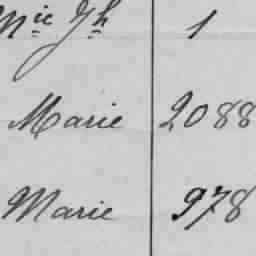 Mie Jh 1
Marie 2088
Marie 978